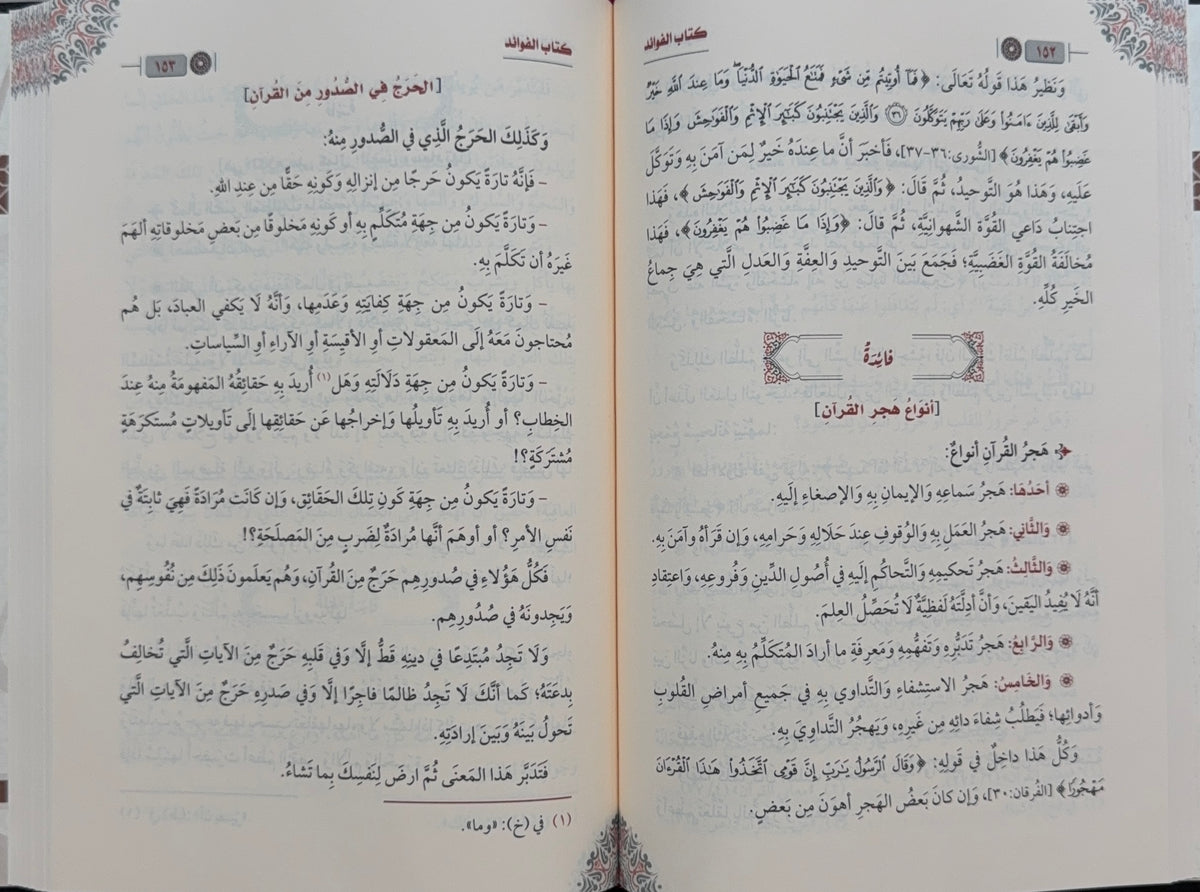 كتاب الفوائد
١٥٢
وَنَظِيرُ هَذا قَولُهُ تَعَالَى: ﴿فَمَآ أُوتِيتُم مِّن شَىْءٍ فَمَتَـٰعُ ٱلْحَيَوٰةِ ٱلدُّنْيَا ۖ وَمَا عِندَ ٱللَّهِ خَيْرٌ
وَأَبْقَىٰ لِلَّذِينَ ءَامَنُوا۟ وَعَلَىٰ رَبِّهِمْ يَتَوَكَّلُونَ ۝٣٦ وَٱلَّذِينَ يَجْتَنِبُونَ كَبَـٰٓئِرَ ٱلْإِثْمِ وَٱلْفَوَٰحِشَ وَإِذَا مَا
غَضِبُوا۟ هُمْ يَغْفِرُونَ﴾ [الشُّورى:٣٦-٣٧]، فَأخبَرَ أنَّ ما عِندَهُ خَيرٌ لِمَن آمَنَ بِهِ وَتَوَكَّلَ
عَلَيهِ، وَهَذا هُوَ التَّوحيدُ، ثُمَّ قَالَ: ﴿وَٱلَّذِينَ يَجْتَنِبُونَ كَبَـٰٓئِرَ ٱلْإِثْمِ وَٱلْفَوَٰحِشَ﴾، فَهَذا
اجتِنابُ دَاعي القُوَّةِ الشَّهوانِيَّةِ، ثُمَّ قالَ: ﴿وَإِذَا مَا غَضِبُوا۟ هُمْ يَغْفِرُونَ﴾، فَهَذا
مُخالَفَةُ القُوَّةِ الغَضَبِيَّةِ؛ فَجَمَعَ بَينَ التَّوحيدِ والعِفَّةِ وَالعَدلِ الَّتي هِيَ جِماعُ
الخَيرِ كُلِّهِ.
فَائِدَةٌ
[أنوَاعُ هَجرِ القُرآنِ]
هَجرُ القُرآنِ أنواعٌ:
أحَدُهَا: هَجرُ سَماعِهِ وَالإيمانِ بِهِ وَالإصغاءِ إلَيهِ.
وَالثَّاني: هَجرُ العَمَلِ بِهِ وَالوُقوفِ عِندَ حَلالِهِ وَحَرامِهِ، وَإن قَرَأهُ وَآمَنَ بِهِ.
وَالثَّالِثُ: هَجرُ تَحكيمِهِ وَالتَّحاكُمِ إلَيهِ في أُصُولِ الدِّينِ وَفُروعِهِ، وَاعتِقادِ
أنَّهُ لَا يُفِيدُ اليَقينَ، وَأنَّ أدِلَّتَهُ لَفظِيَّةٌ لَا تُحَصِّلُ العِلمَ.
وَالرَّابِعُ: هَجرُ تَدَبُّرِهِ وَتَفَهُّمِهِ وَمَعرِفَةِ ما أرادَ المُتَكَلِّمُ بِهِ مِنهُ.
وَالخَامِسُ: هَجرُ الاستِشفاءِ وَالتَّداوي بِهِ في جَميعِ أمراضِ القُلوبِ
وَأدوائِها؛ فيَطلُبُ شِفاءَ دائِهِ مِن غَيرِهِ، وَيَهجُرُ التَّداوِيَ بِهِ.
وَكُلُّ هَذا داخِلٌ في قَولِهِ: ﴿وَقَالَ ٱلرَّسُولُ يَـٰرَبِّ إِنَّ قَوْمِى ٱتَّخَذُوا۟ هَـٰذَا ٱلْقُرْءَانَ
مَهْجُورًا﴾ [الفُرقان:٣٠]، وَإن كانَ بَعضُ الهَجرِ أهوَنَ مِن بَعضٍ.
كتاب الفوائد
١٥٣
[الحَرَجُ في الصُّدُورِ مِنَ القُرآنِ]
وَكَذَلِكَ الحَرَجُ الَّذي في الصُّدورِ مِنهُ:
– فَإنَّهُ تارَةً يَكونُ حَرجًا مِن إنزالِهِ وَكَونِهِ حَقًّا مِن عِندِ اللهِ.
– وَتارَةً يَكونُ مِن جِهَةِ مُتَكَلِّمٍ بِهِ أو كَونِهِ مَخلوقًا مِن بَعضِ مَخلوقاتِهِ ألهَمَ
غَيرَهُ أن تَكَلَّمَ بِهِ.
– وَتارَةً يَكونُ مِن جِهَةِ كِفايَتِهِ وَعَدَمِها، وَأنَّهُ لَا يَكفي العِبادَ، بَل هُم
مُحتاجونَ مَعَهُ إلَى المَعقولاتِ أوِ الأقيِسَةِ أوِ الآراءِ أوِ السِّياساتِ.
– وَتارَةً يَكونُ مِن جِهَةِ دَلَالَتِهِ وَهَل(١) أُريدَ بِهِ حَقائِقُهُ المَفهومَةُ مِنهُ عِندَ
الخِطابِ؟ أو أُريدَ بِهِ تَأويلُها وَإخراجُها عَن حَقائِقِها إلَى تَأويلاتٍ مُستَكرَهَةٍ
مُشتَرَكَةٍ؟!
– وَتارَةً يَكونُ مِن جِهَةِ كَونِ تِلكَ الحَقائِقِ، وَإن كَانَت مُرادَةً فَهِيَ ثابِتَةٌ في
نَفسِ الأمرِ؟ أو أوهَمَ أنَّها مُرادَةٌ لِضَربٍ مِنَ المَصلَحَةِ؟!
فَكُلُّ هَؤُلاءِ في صُدُورِهِم حَرَجٌ مِنَ القُرآنِ، وَهُم يَعلَمونَ ذَلِكَ مِن نُفُوسِهِم،
وَيَجِدونَهُ في صُدُورِهِم.
وَلَا تَجِدُ مُبتَدِعًا في دينِهِ قَطُّ إلَّا وَفي قَلبِهِ حَرَجٌ مِنَ الآياتِ الَّتي تُخالِفُ
بِدعَتَهُ؛ كَما أنَّكَ لَا تَجِدُ ظالمًا فاجِرًا إلَّا وَفي صَدرِهِ حَرَجٌ مِنَ الآياتِ الَّتي
تَحولُ بَينَهُ وَبَينَ إرادَتِهِ.
فَتَدَبَّر هَذا المَعنَى ثُمَّ ارضَ لِنَفسِكَ بِما تَشاءُ.
(١) في (خ): «وما».